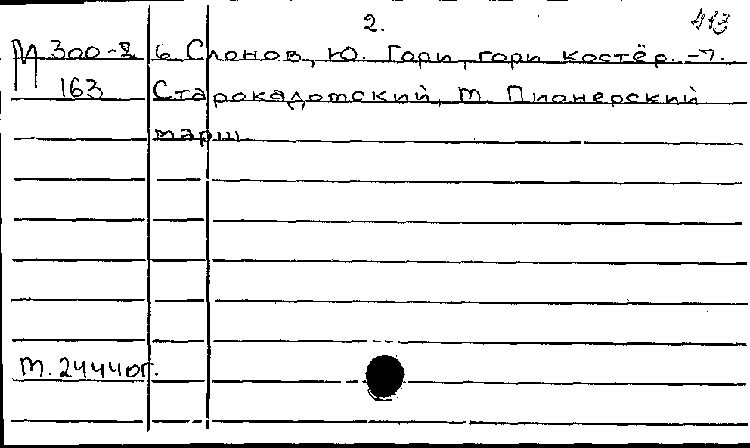 2.
413
М 300-2 6. Слонов, Ю. Гори, гори костёр. -7.
163 Старокадомский, М. Пионерский
марш.
т. 24440г.